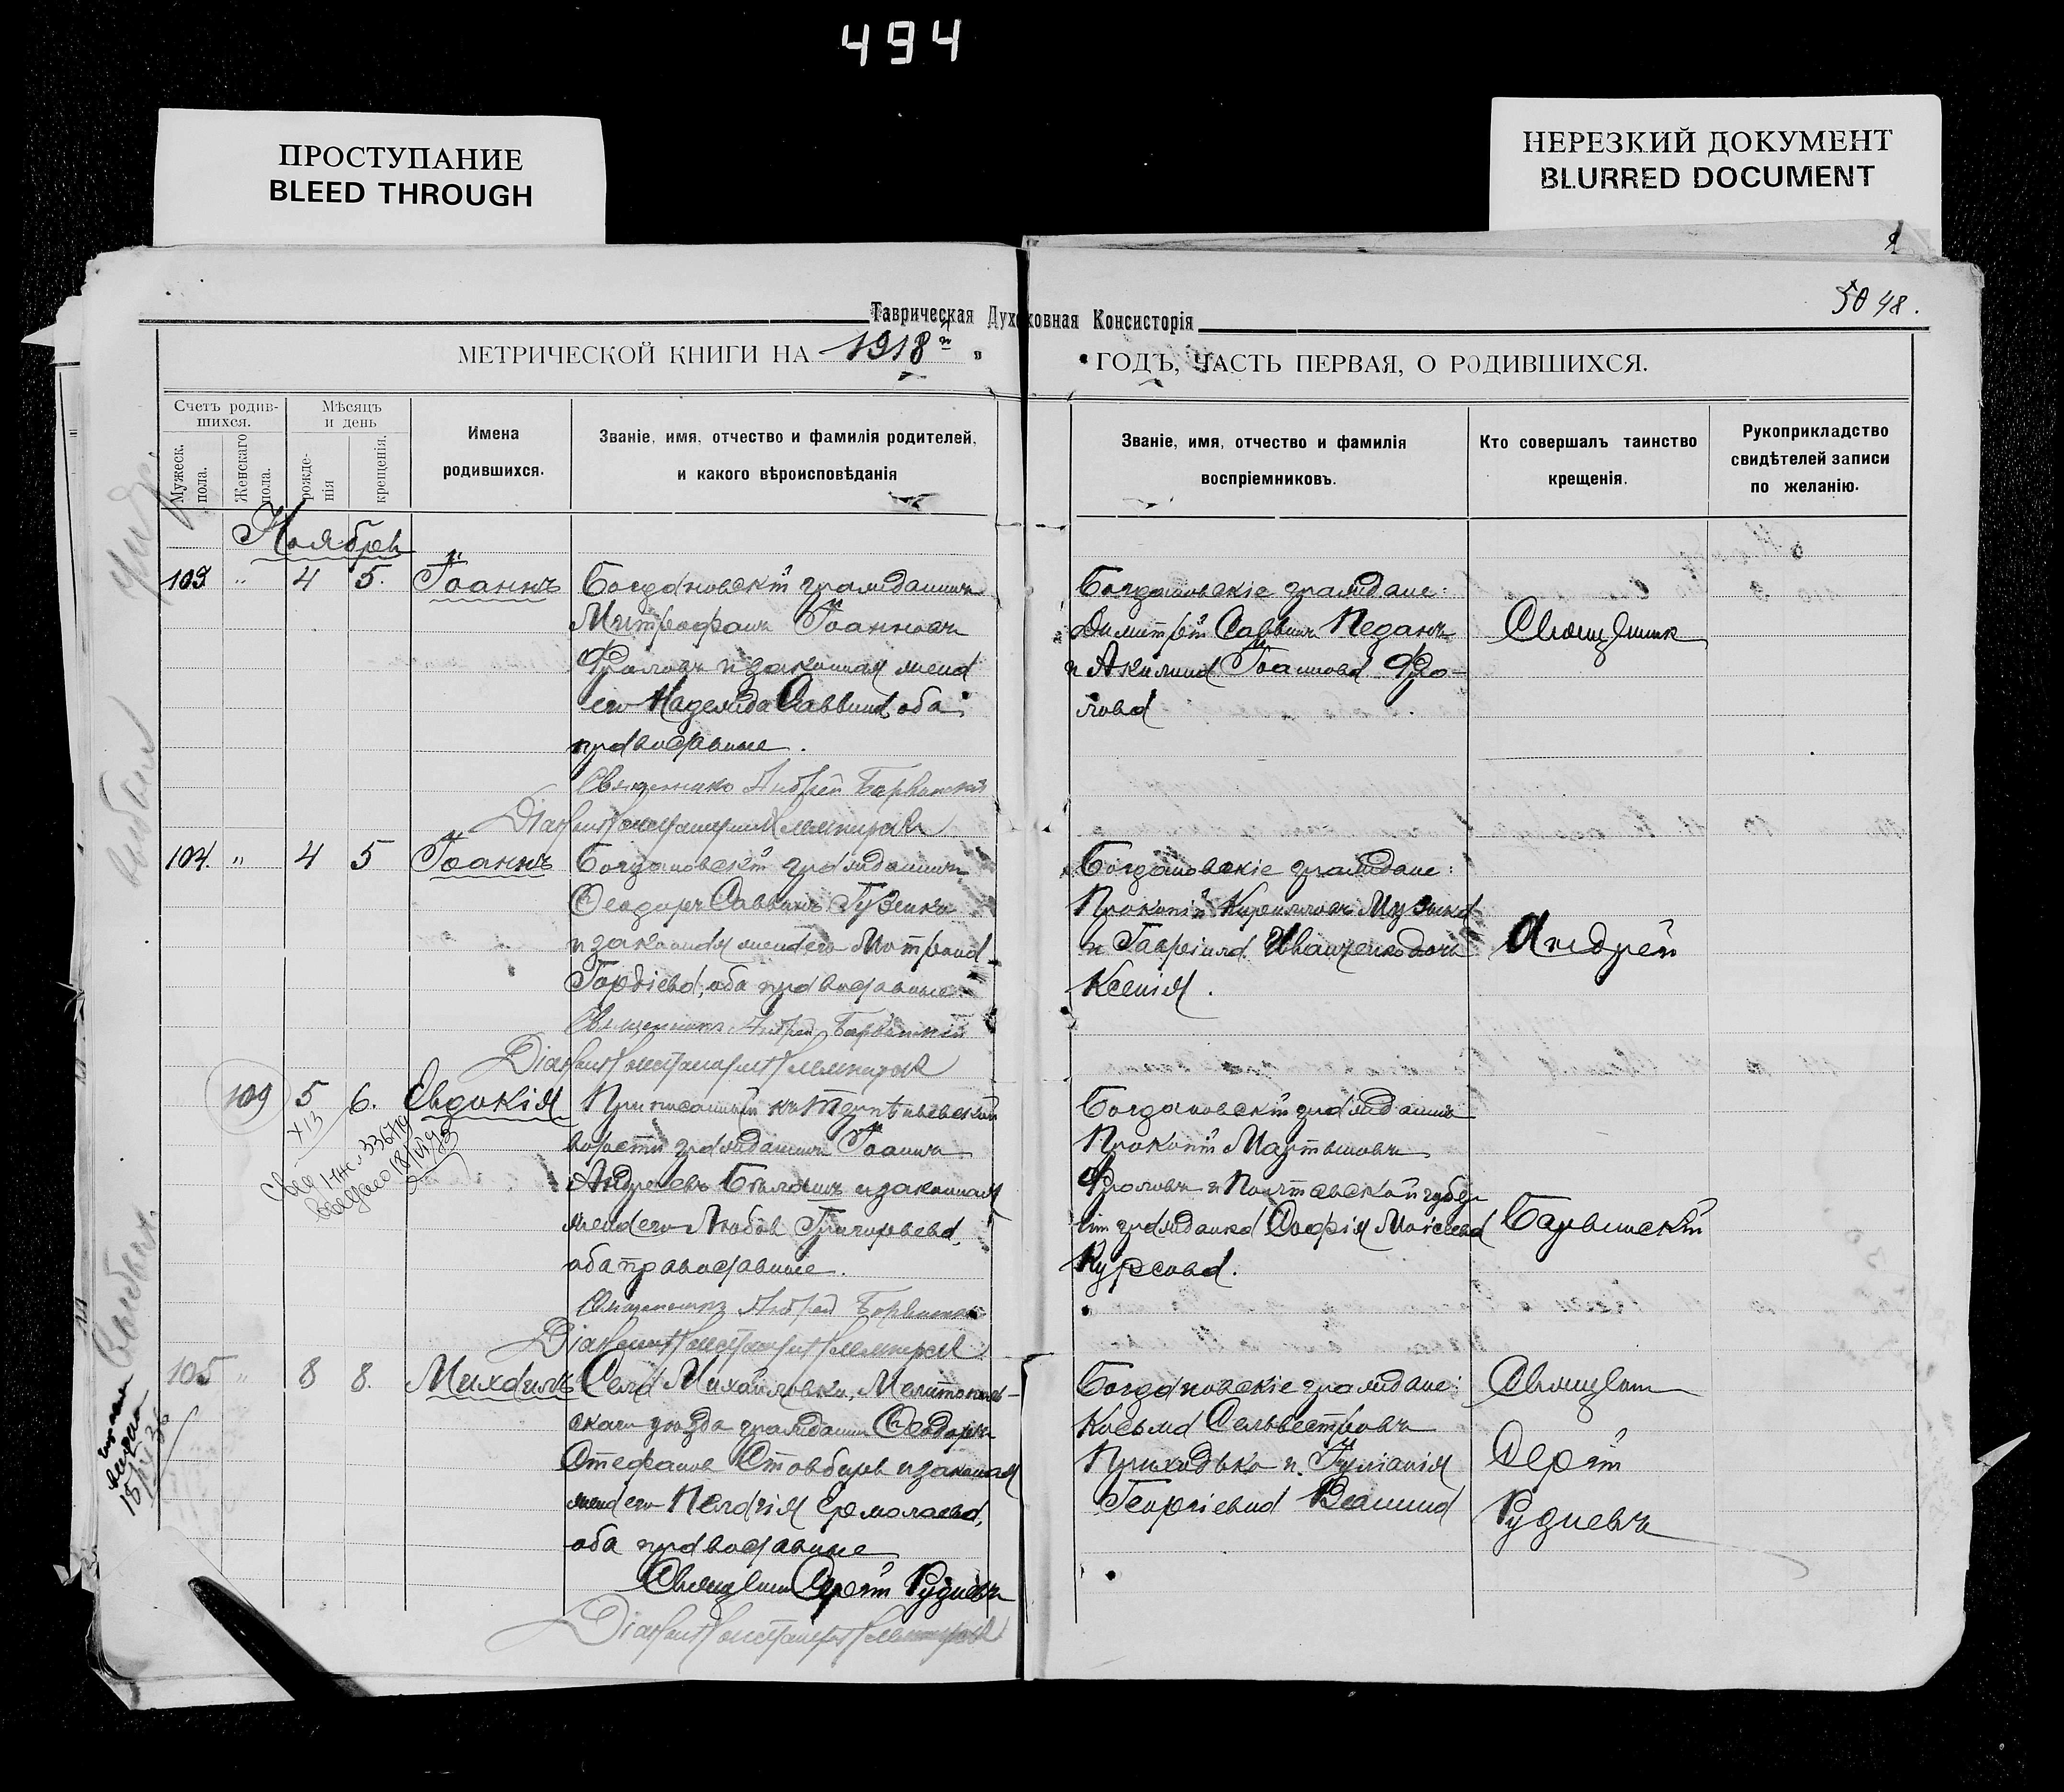 494
ПРОСТУПАНИЕ
BLEED THROUGH
НЕРЕЗКИЙ ДОКУМЕНТ
BLURRED DOCUMENT
50 48.
Таврическая Духовная Консисторія
МЕТРИЧЕСКОЙ КНИГИ НА 1918 й
ГОДЪ, ЧАСТЬ ПЕРВАЯ, О РОДИВШИХСЯ.
Счетъ родившихся.
Мужеск. пола.
Женскаго пола.
Мѣсяцъ и день
рожденія
крещенія.
Имена
родившихся.
Званіе, имя, отчество и фамилія родителей,
и какого вѣроисповѣданія
Званіе, имя, отчество и фамилія
воспріемниковъ.
Кто совершалъ таинство
крещенія.
Рукоприкладство
свидѣтелей записи
по желанію.
Ноябрь
103 " 4 5. Іоаннъ
Богдановскій гражданинъ
Митрофанъ Іоанновъ
Фроловъ и законная жена
его Надежда Саввина, оба
православные.
Священникъ Андрей Барвинскій
Діаконъ Константинъ
Богдановскіе граждане:
Димитрій Саввинъ Педанъ
и Акилина Іоаннова Фро-
лова
Священник
104. " 4 5 Іоаннъ
Богдановскій гражданинъ
Ѳеодоръ Саввинъ Гузенко
и законная жена его Мотрона
Гордіева, оба православные.
Священникъ Андрей Барвинскій
Діаконъ Константинъ
Богдановскіе граждане:
Прокопій Кирилловъ Музыка
и Гавріила Иванченко дочь
Ксенія.
Андрей
109 5 6. Евдокія
XI 3
Приписанный къ
волости гражданинъ Іоаннъ
Андреевъ и законная
жена его Любовь Григорьева,
оба православные.
Священникъ Андрей Барвинскій
Діаконъ Константинъ
Богдановскій гражданинъ
Прокопій Мартиновъ
Фроловъ и Полтавской губер
ніи гражданка Софія Моісеева
Курсова.
Барвинскій
105 " 8 8. Михаилъ
Села Михайловки, Мелитополь-
скаго уѣзда гражданинъ Ѳеодоръ
Стефановъ и законная
жена его Пелагія Ермолаева,
оба православные
Священникъ Сергій Рудневъ
Діаконъ Константинъ
Богдановскіе граждане:
Косьма Сельвестровъ
Приходько и Іуліанія
Георгіевна
Священник
Сергій
Рудневъ